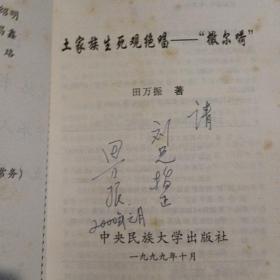 土家族生死观绝唱——“撒尔嗬”
田万振 著
请
刘兄指正
田万振
2000年元月
中央民族大学出版社
一九九九年十月
绍明
昌鑫
珞
常务）